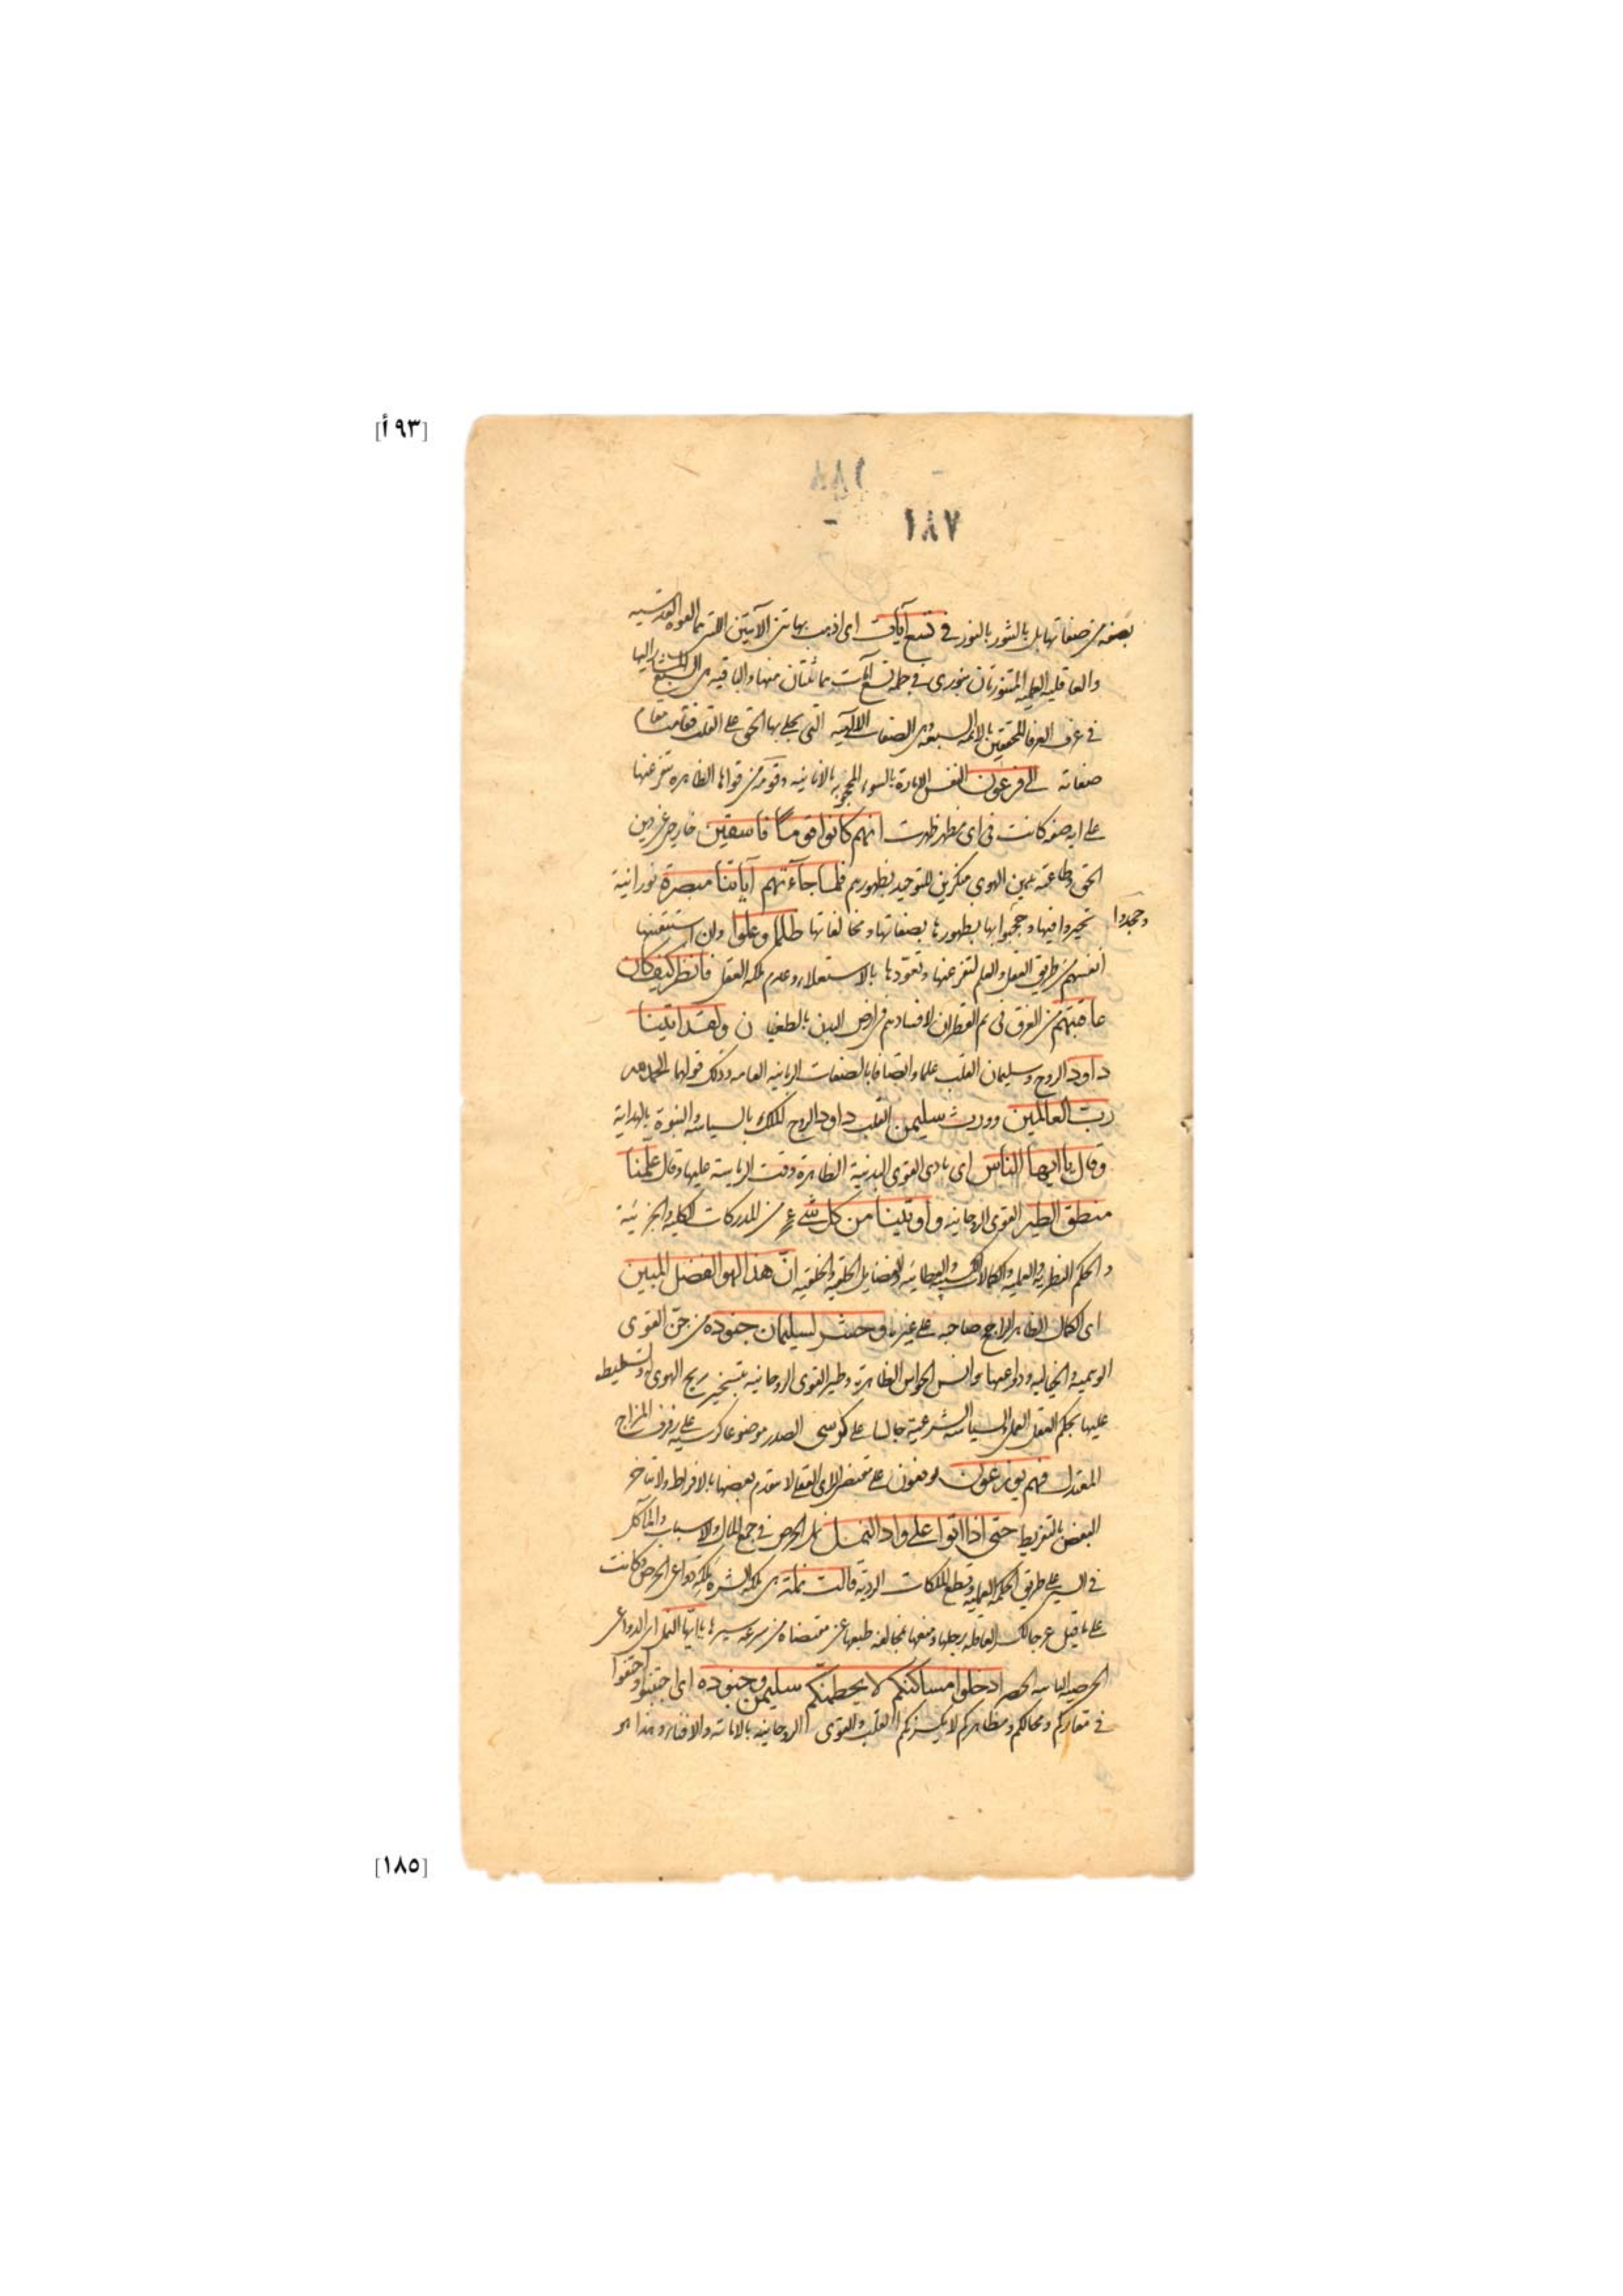 [٩٣أ]
١٨٨
١٨٧
بصفة من صفاتها بل بالتنور بالنور في تسع آيات اى اذهب بهاتين الآيتين اللتين هما القوة القدسيه
والعاقلية العلمية المتنورتان بنورى في جملة تسع آيات هما ثنتان منها والباقية هى السبع المشار اليها
في عرف العرفا المحققين بالائمة السبعة هى الصفات الالهية التى تجلى بها الحق على القلب فقامت مقام
صفاته الى فرعون النفس الامارة بالسوء المحجوبه بالانانيه وقومه من قواها الظاهرة متفرعنها
على ايه صفه كانت فى اى مظهر ظهرت انهم كانوا قوما فاسقين خارجين عن دين
الحق وطاعته بدين الهوى منكرين للتوحيد بظهورهم فلما جاءتهم آياتنا مبصرة نورانية
وجحدوا
تحيروا فيها وحجبوا بها بظهورها بصفاتها ومخالفاتها ظلما وعلوا وان استيقنتها
انفسهم من طريق العقل والعلم لتفرعنها وتعودها بالاستعلاء وعدم ملكه العقل فانظر كيف كان
عاقبتهم من الغرق فى يم القطران لافسادهم فى ارض البدن بالطغيان ولقد اتينا
داود الروح وسليمان القلب علما واتصافا بالصفات الربانيه العامه وذلك قولهما الحمد لله
رب العالمين وورث سليمن القلب داود الروح الملك بالسياسة والنبوة بالهداية
وقال ياايها الناس اى نادى القوى البدنية الظاهرة وقت الرياسة عليها وقال علمنا
منطق الطير القوى الروحانيه واوتينا من كل شئ من المدركات الكليه والجزئية
والحكم النظرية والعملية والكمالات الكسبية والعطائيه والفضايل الخلقية والخلقيه ان هذا لهو الفضل المبين
اى الكمال الظاهر الراجح صاحبه على غيره وحشر لسليمان جنوده من جن القوى
الوهمية والخياليه ودواعيها وانس الحواس الظاهرة وطير القوى الروحانيه بتسخير ريح الهوى وتسليطه
عليها بحكم العقل العملى والسياسة الشرعية جالسا على كرسى الصدر موضوعا كرسيه على رفرف المزاج
المعتدل فهم يوزعون يوقفون على مقتضى الراى العقلى لا يتقدم بعضها بالافراط ولا يتاخر
البعض بالتفريط حتى اذا اتوا على واد النمل نمل الحرص فى جمع المال والاسباب والمآكل
في السير على طريق الحكمه العمليه وقطع الملكات الرديه قالت نملة هى ملكة الشره ملكة دواعى الحرص وكانت
على ما قيل عرجا لكسر العاقلة رجلها ومنعها بمخالفه طبعها عن مقتضاه من سرعه سيرها ياايها النمل اى الدواعى
الحرصيه ادخلوا مساكنكم لا يحطمنكم سليمن وجنوده اى اجتنبوا واختفوا
في مقاركم ومحالكم ومظاهركم لا يكسرنكم القلب والقوى الروحانيه بالاماته والافناء وهذا هو
[١٨٥]